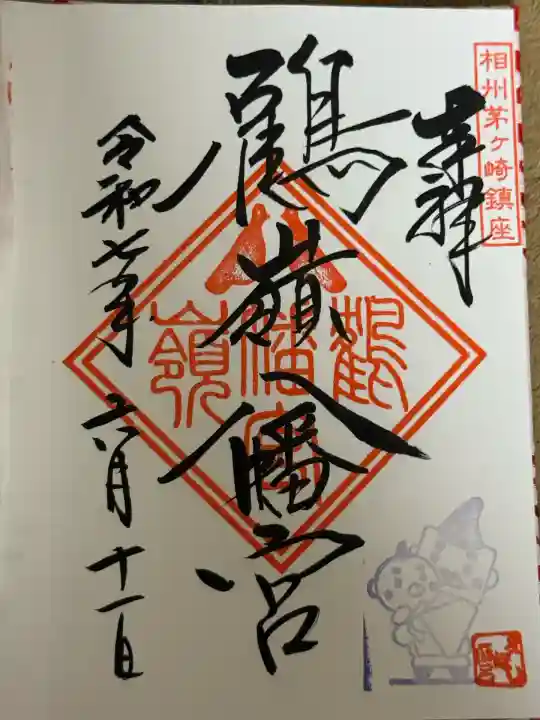 相州茅ヶ崎鎮座
奉拝
鶴嶺八幡宮
鶴
八幡宮
嶺
令和七年 六月 十一日